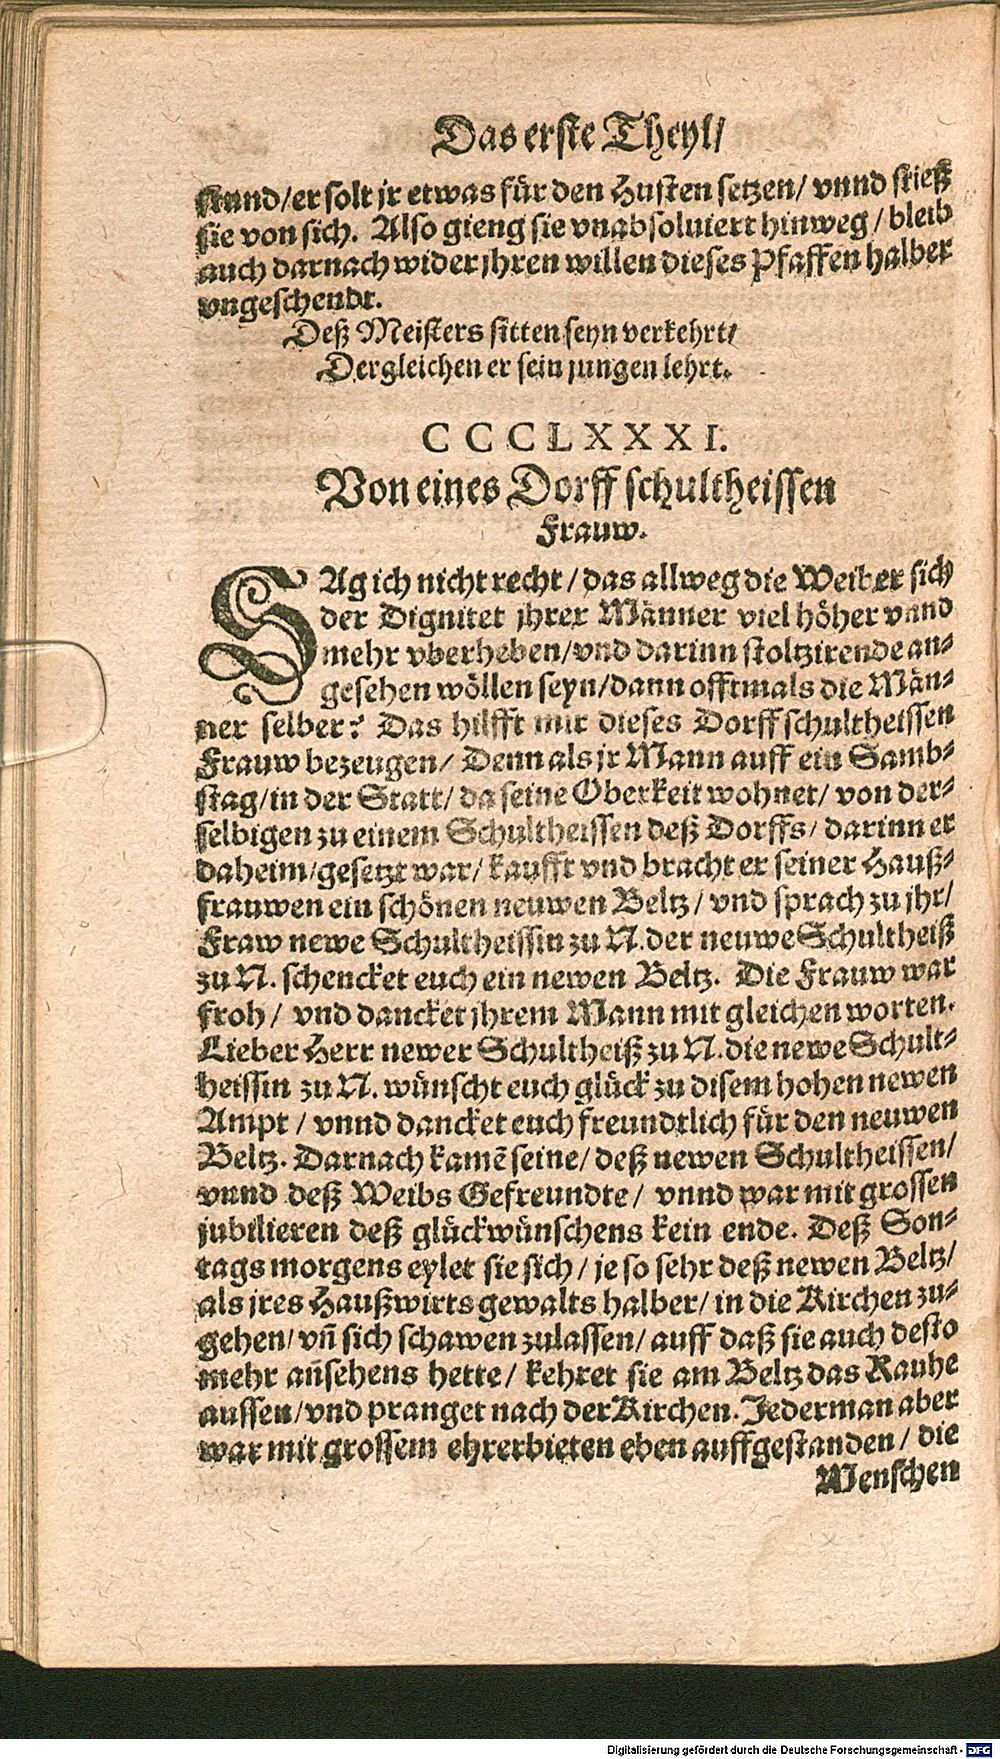 Das erste Theyl/
stund/er solt jr etwas für den Husten setzen/ vnnd stieß
sie von sich. Also gieng sie vnabsoluiert hinweg/ bleib
auch darnach wider jhren willen dieses Pfaffen halber
vngeschendt.
Deß Meisters sitten seyn verkehrt/
Dergleichen er sein jungen lehrt.
CCCCLXXXI.
Von eines Dorffschultheissen
Frauw.
SAg ich nicht recht/das allweg die Weiber sich
der Dignitet jhrer Männer viel höher vnnd
mehr vberheben/vnd darinn stoltzirende an-
gesehen wöllen seyn/dann offtmals die Män-
ner selber? Das hilfft mir dieses Dorffschultheissen
Frauw bezeugen/ Denn als jr Mann auff ein Samb-
stag/in der Statt/ da seine Oberkeit wohnet/ von der-
selbigen zu einem Schultheissen deß Dorffs/ darinn er
daheim/gesetzt war/ kaufft vnd bracht er seiner Hauß-
frauwen ein schönen neuwen Beltz/ vnd sprach zu jhr/
Fraw newe Schultheissin zu N. der neuwe Schultheiß
zu N. schencket euch ein newen Beltz. Die Frauw war
froh/ vnd dancket jhrem Mann mit gleichen worten.
Lieber Herr newer Schultheiß zu N. die newe Schult-
heissin zu N. wünscht euch glück zu disem hohen newen
Ampt/ vnnd dancket euch freundtlich für den neuwen
Beltz. Darnach kamẽ seine/ deß newen Schultheissen/
vnnd deß Weibs Gefreundte/ vnnd war mit grossen
jubilieren deß glückwünschens kein ende. Deß Son-
tags morgens eylet sie sich/ je so sehr deß newen Beltz/
als jres Haußwirts gewalts halber/ in die Kirchen zu-
gehen/ vñ sich schawen zulassen/ auff daß sie auch desto
mehr añsehens hette/ kehret sie am Beltz das Rauhe
aussen/vnd pranget nach der Kirchen. Jederman aber
war mit grossem ehrerbieten eben auffgestanden/ die
Menschen
Digitalisierung gefördert durch die Deutsche Forschungsgemeinschaft - DFG